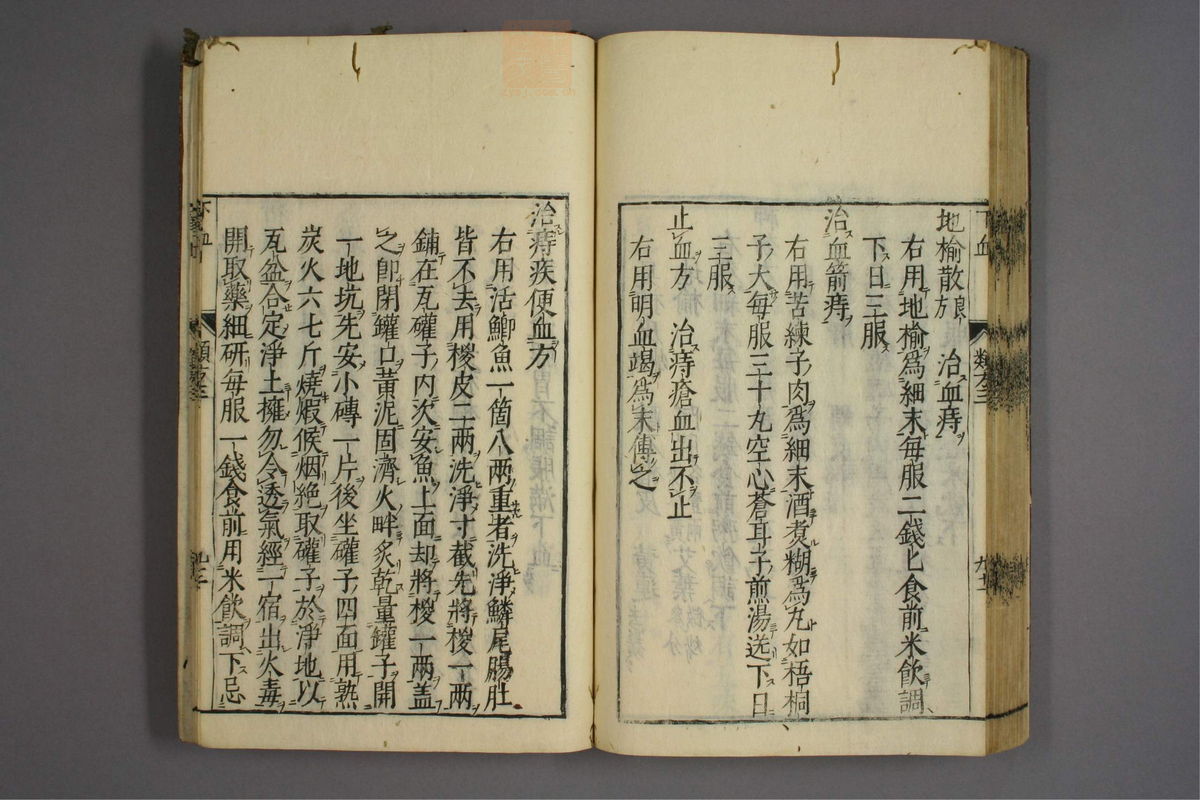 地榆散方良 治血痔
右用地榆爲細末每服二錢匕食前米飲調
下日三服
治血箭痔
右用苦練子肉爲細末酒煮糊爲丸如梧桐
子大每服三十丸空心蒼耳子煎湯送下日
三服
止血方 治痔瘡血出不止
右用明血竭爲末傅之
治痔疾便血方
右用活鯽魚一箇八兩重者洗淨鱗尾腸肚
皆不去用椶皮二兩洗淨寸截先將椶一兩
鋪在瓦礶子內次安魚上面却將椶一兩盖
之卽閉礶口黃泥固濟火畔炙乾量礶子開
一地坑先安小磚一片後坐礶子四面用熟
炭火六七斤燒煆候烟絶取礶子於淨地以
瓦盆合定淨土擁勿令透氣經一宿出火毒
開取藥細研每服一錢食前用米飲調下忌